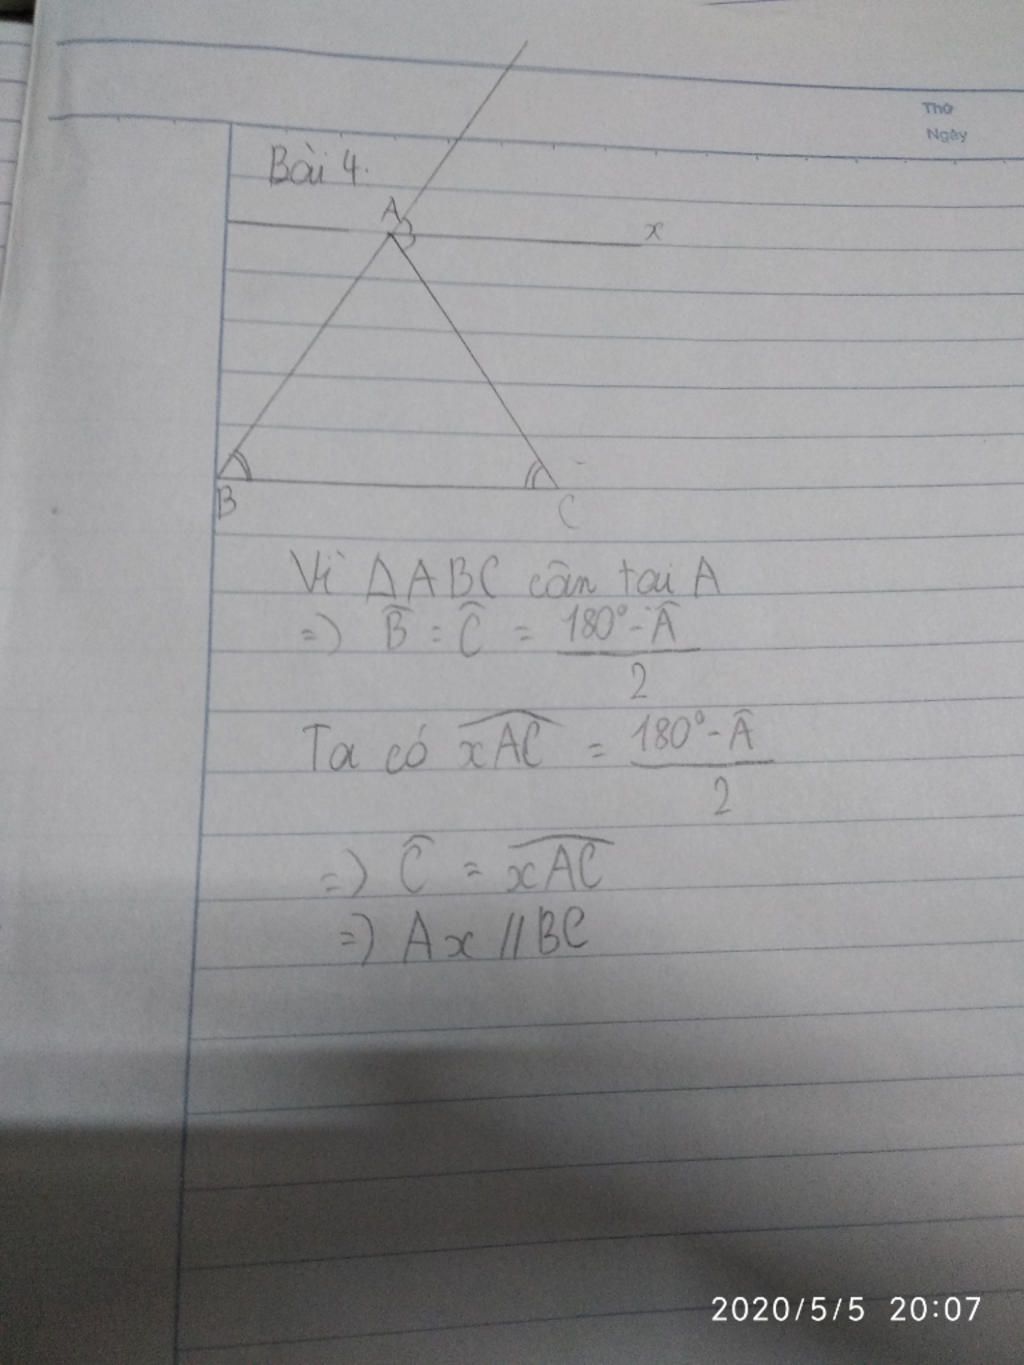 Thứ
Ngày
Bài 4.
A
x
B
C
Vì ΔABC cân tại A
=) B̂ = Ĉ = (180° - Â)/2
Ta có x͡AC = (180° - Â)/2
=) Ĉ = x͡AC
=) Ax // BC
2020/5/5 20:07